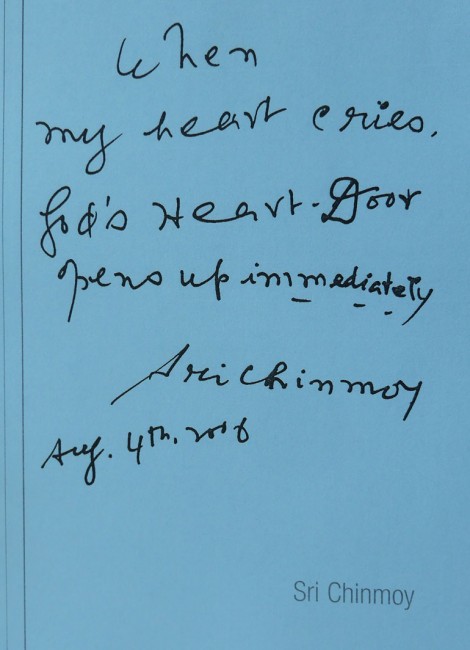 When
my heart cries,
God's Heart-Door
opens up immediately
Sri Chinmoy
Aug. 4th. 2006
Sri Chinmoy